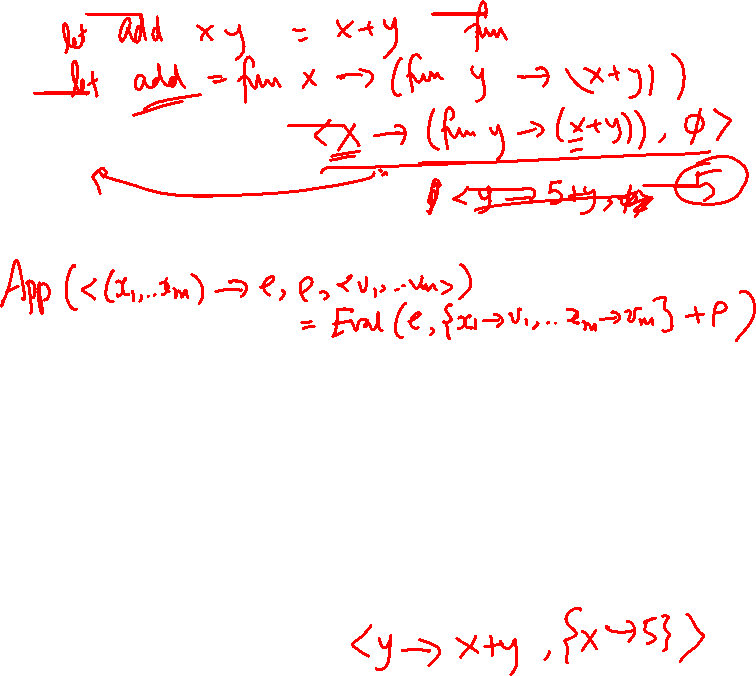 let add x y = x+y fun
let add = fun x → (fun y → (x+y))
<x → (fun y → (x+y)), φ>
<y → 5+y, φ> 5
App (<(x₁,..xₘ) → e, ρ, <v₁,..vₘ>)
= Eval (e, {x₁→v₁,.. xₘ→vₘ} + ρ)
<y → x+y, {x→5}>